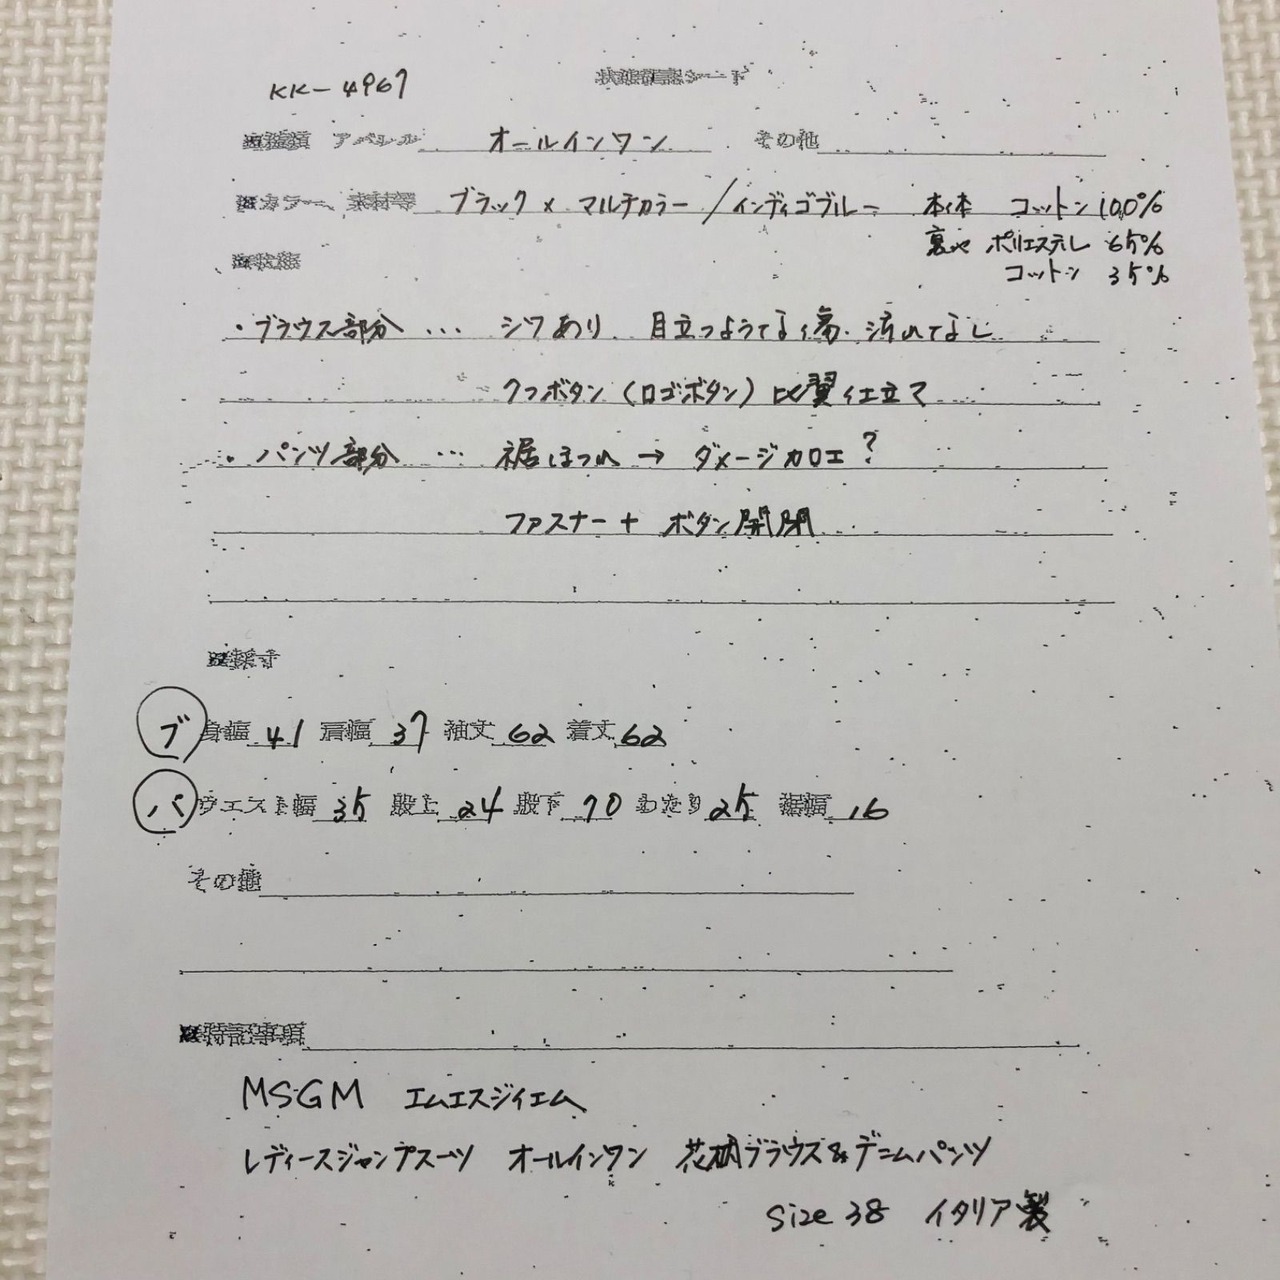 KK-4967 状態確認シート
■種類 アパレル オールインワン その他
■カラー、素材等 ブラック × マルチカラー / インディゴブルー 本体 コットン 100%
裏地 ポリエステル 65%
コットン 35%
■状態
・ブラウス部分 … シワあり 目立つような傷・汚れなし
クフボタン (ロゴボタン) 比翼仕立て
・パンツ部分 … 裾ほつれ → ダメージ加工?
ファスナー + ボタン開閉
■採寸
ブ 身幅 41 肩幅 37 袖丈 62 着丈 62
パ ウエスト幅 35 股上 24 股下 70 わたり 25 裾幅 16
その他
■特記事項
MSGM エムエスジイエム
レディースジャンプスーツ オールインワン 花柄ブラウス&デニムパンツ
size 38 イタリア製